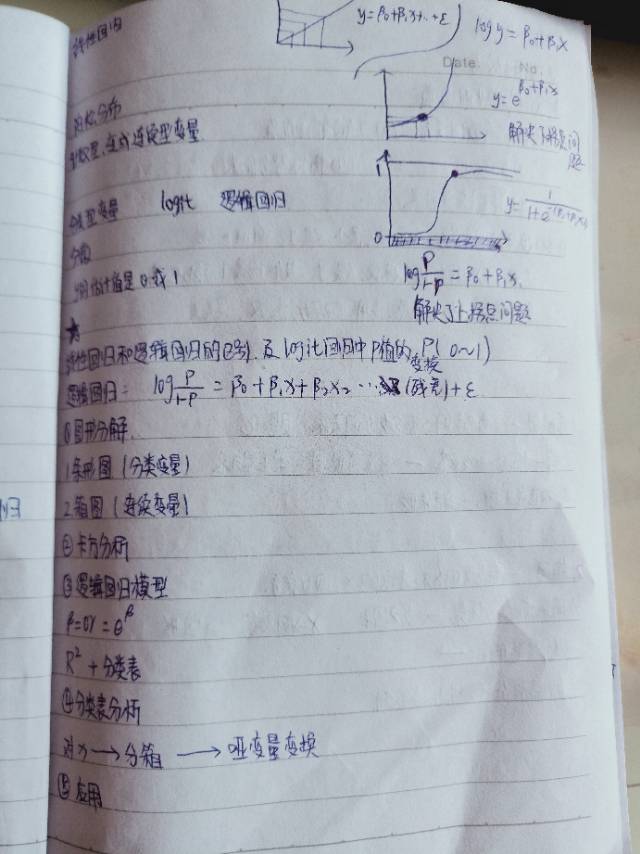 线性回归
y=β₀+β₁x+…+ε
log y=β₀+β₁x
Date. No.
y=e^(β₀+β₁x)
分布
变成连续型变量
解决了拐点问题
1
变量 logit 逻辑回归
y=1/(1+e^
0
估计值是 0 或 1
log P/(1-P) = β₀+β₁x
解决了上拐点问题
★
线性回归和逻辑回归的区别 及 logit 回归中 P值的变换 P(0~1)
逻辑回归: log P/(1-P) = β₀+β₁x+β₂x₂… (残差)+ε
①图形分解
1.条形图 (分类变量)
2.箱图 (连续变量)
归
②卡方分析
③逻辑回归模型
β=OY=e^β
R²+分类表
④分类表分析
对x→分箱→哑变量变换
⑤应用